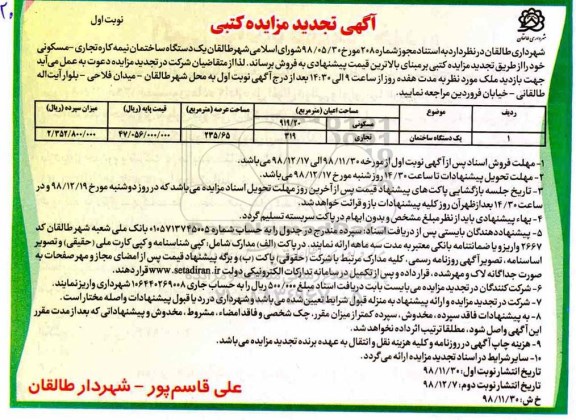 نوبت اول
آگهی تجدید مزایده کتبی
شهرداری طالقان
شهرداری طالقان در نظر دارد به استناد مجوز شماره ۲۰۸ مورخ ۹۸/۰۵/۳۰ شورای اسلامی شهر طالقان یک دستگاه ساختمان نیمه کاره تجاری – مسکونی
خود را از طریق تجدید مزایده کتبی بر مبنای بالاترین قیمت پیشنهادی به فروش برساند. لذا از متقاضیان شرکت در تجدید مزایده دعوت به عمل می‌آید
جهت بازدید ملک مورد نظر به مدت هفده روز از ساعت ۹ الی ۱۴:۳۰ بعد از درج آگهی نوبت اول به محل شهر طالقان – میدان فلاحی – بلوار آیت‌اله
طالقانی – خیابان فروردین مراجعه نمایید.
ردیف موضوع مساحت اعیان (مترمربع) مساحت عرصه (مترمربع) قیمت پایه (ریال) میزان سپرده (ریال)
مسکونی ۹۱۹/۲۰
۱ یک دستگاه ساختمان تجاری ۳۱۹ ۲۳۵/۶۵ ۴۷/۰۵۶/۰۰۰/۰۰۰ ۲/۳۵۲/۸۰۰/۰۰۰
۱- مهلت فروش اسناد پس از آگهی نوبت اول از مورخه ۹۸/۱۱/۳۰ الی ۹۸/۱۲/۱۷ می‌باشد.
۲- مهلت تحویل پیشنهادات تا ساعت ۱۴:۳۰ روز شنبه مورخ ۹۸/۱۲/۱۷ می‌باشد.
۳- تاریخ جلسه بازگشایی پاکت‌های پیشنهاد قیمت پس از آخرین روز مهلت تحویل اسناد مزایده می‌باشد که در روز دوشنبه مورخ ۹۸/۱۲/۱۹ و در
ساعت ۱۴/۳۰ بعدازظهر آن روز کلیه پیشنهادات باز و قرائت خواهد شد.
۴- بهاء پیشنهادی باید از نظر مبلغ مشخص و بدون ابهام در پاکت سربسته تسلیم گردد.
۵- پیشنهاددهندگان بایستی پس از دریافت اسناد: سپرده مندرج در جدول را به حساب شماره ۰۱۰۵۷۱۳۷۴۵۰۰۵ بانک ملی شعبه شهر طالقان کد
۲۶۶۷ واریز و یا ضمانتنامه بانکی معتبر به مدت سه ماهه ارائه نمایند. در پاکت (الف) مدارک شامل: کپی شناسنامه و کپی کارت ملی (حقیقی) و تصویر
اساسنامه، تصویر آگهی روزنامه رسمی. کلیه مدارک مرتبط با شرکت (حقوقی) پاکت (ب) و برگه پیشنهاد قیمت پس از امضای مجاز و مهر صفحات به
صورت جداگانه لاک و مهر شده، قرار داده و پس از تکمیل در سامانه تدارکات الکترونیکی دولت www.setadiran.ir قرار دهند.
۶- شرکت کنندگان در تجدید مزایده می‌بایست بابت دریافت اسناد مبلغ ۵۰۰/۰۰۰ ریال را به حساب جاری ۰۱۰۶۴۴۰۲۶۹۰۰۸ شهرداری واریز نمایند.
۷- شرکت در تجدید مزایده و ارائه پیشنهاد به منزله قبول شرایط تعیین شده می‌باشد و شهرداری در رد یا قبول پیشنهادات واصله مختار است.
۸- به پیشنهادات فاقد سپرده، مخدوش، سپرده کمتر از میزان مقرر، چک شخصی و فاقد امضاء، مشروط، مخدوش و پیشنهاداتی که بعد از مدت مقرر
این آگهی واصل شود، مطلقا ترتیب اثر داده نخواهد شد.
۹- هزینه چاپ آگهی در روزنامه و کلیه هزینه نقل و انتقال به عهده برنده تجدید مزایده می‌باشد.
۱۰- سایر شرایط در اسناد تجدید مزایده ارائه می‌گردد.
تاریخ انتشار نوبت اول: ۹۸/۱۱/۳۰
تاریخ انتشار نوبت دوم: ۹۸/۱۲/۷
خ ش: ۹۸/۱۱/۳۰
علی قاسم‌پور – شهردار طالقان